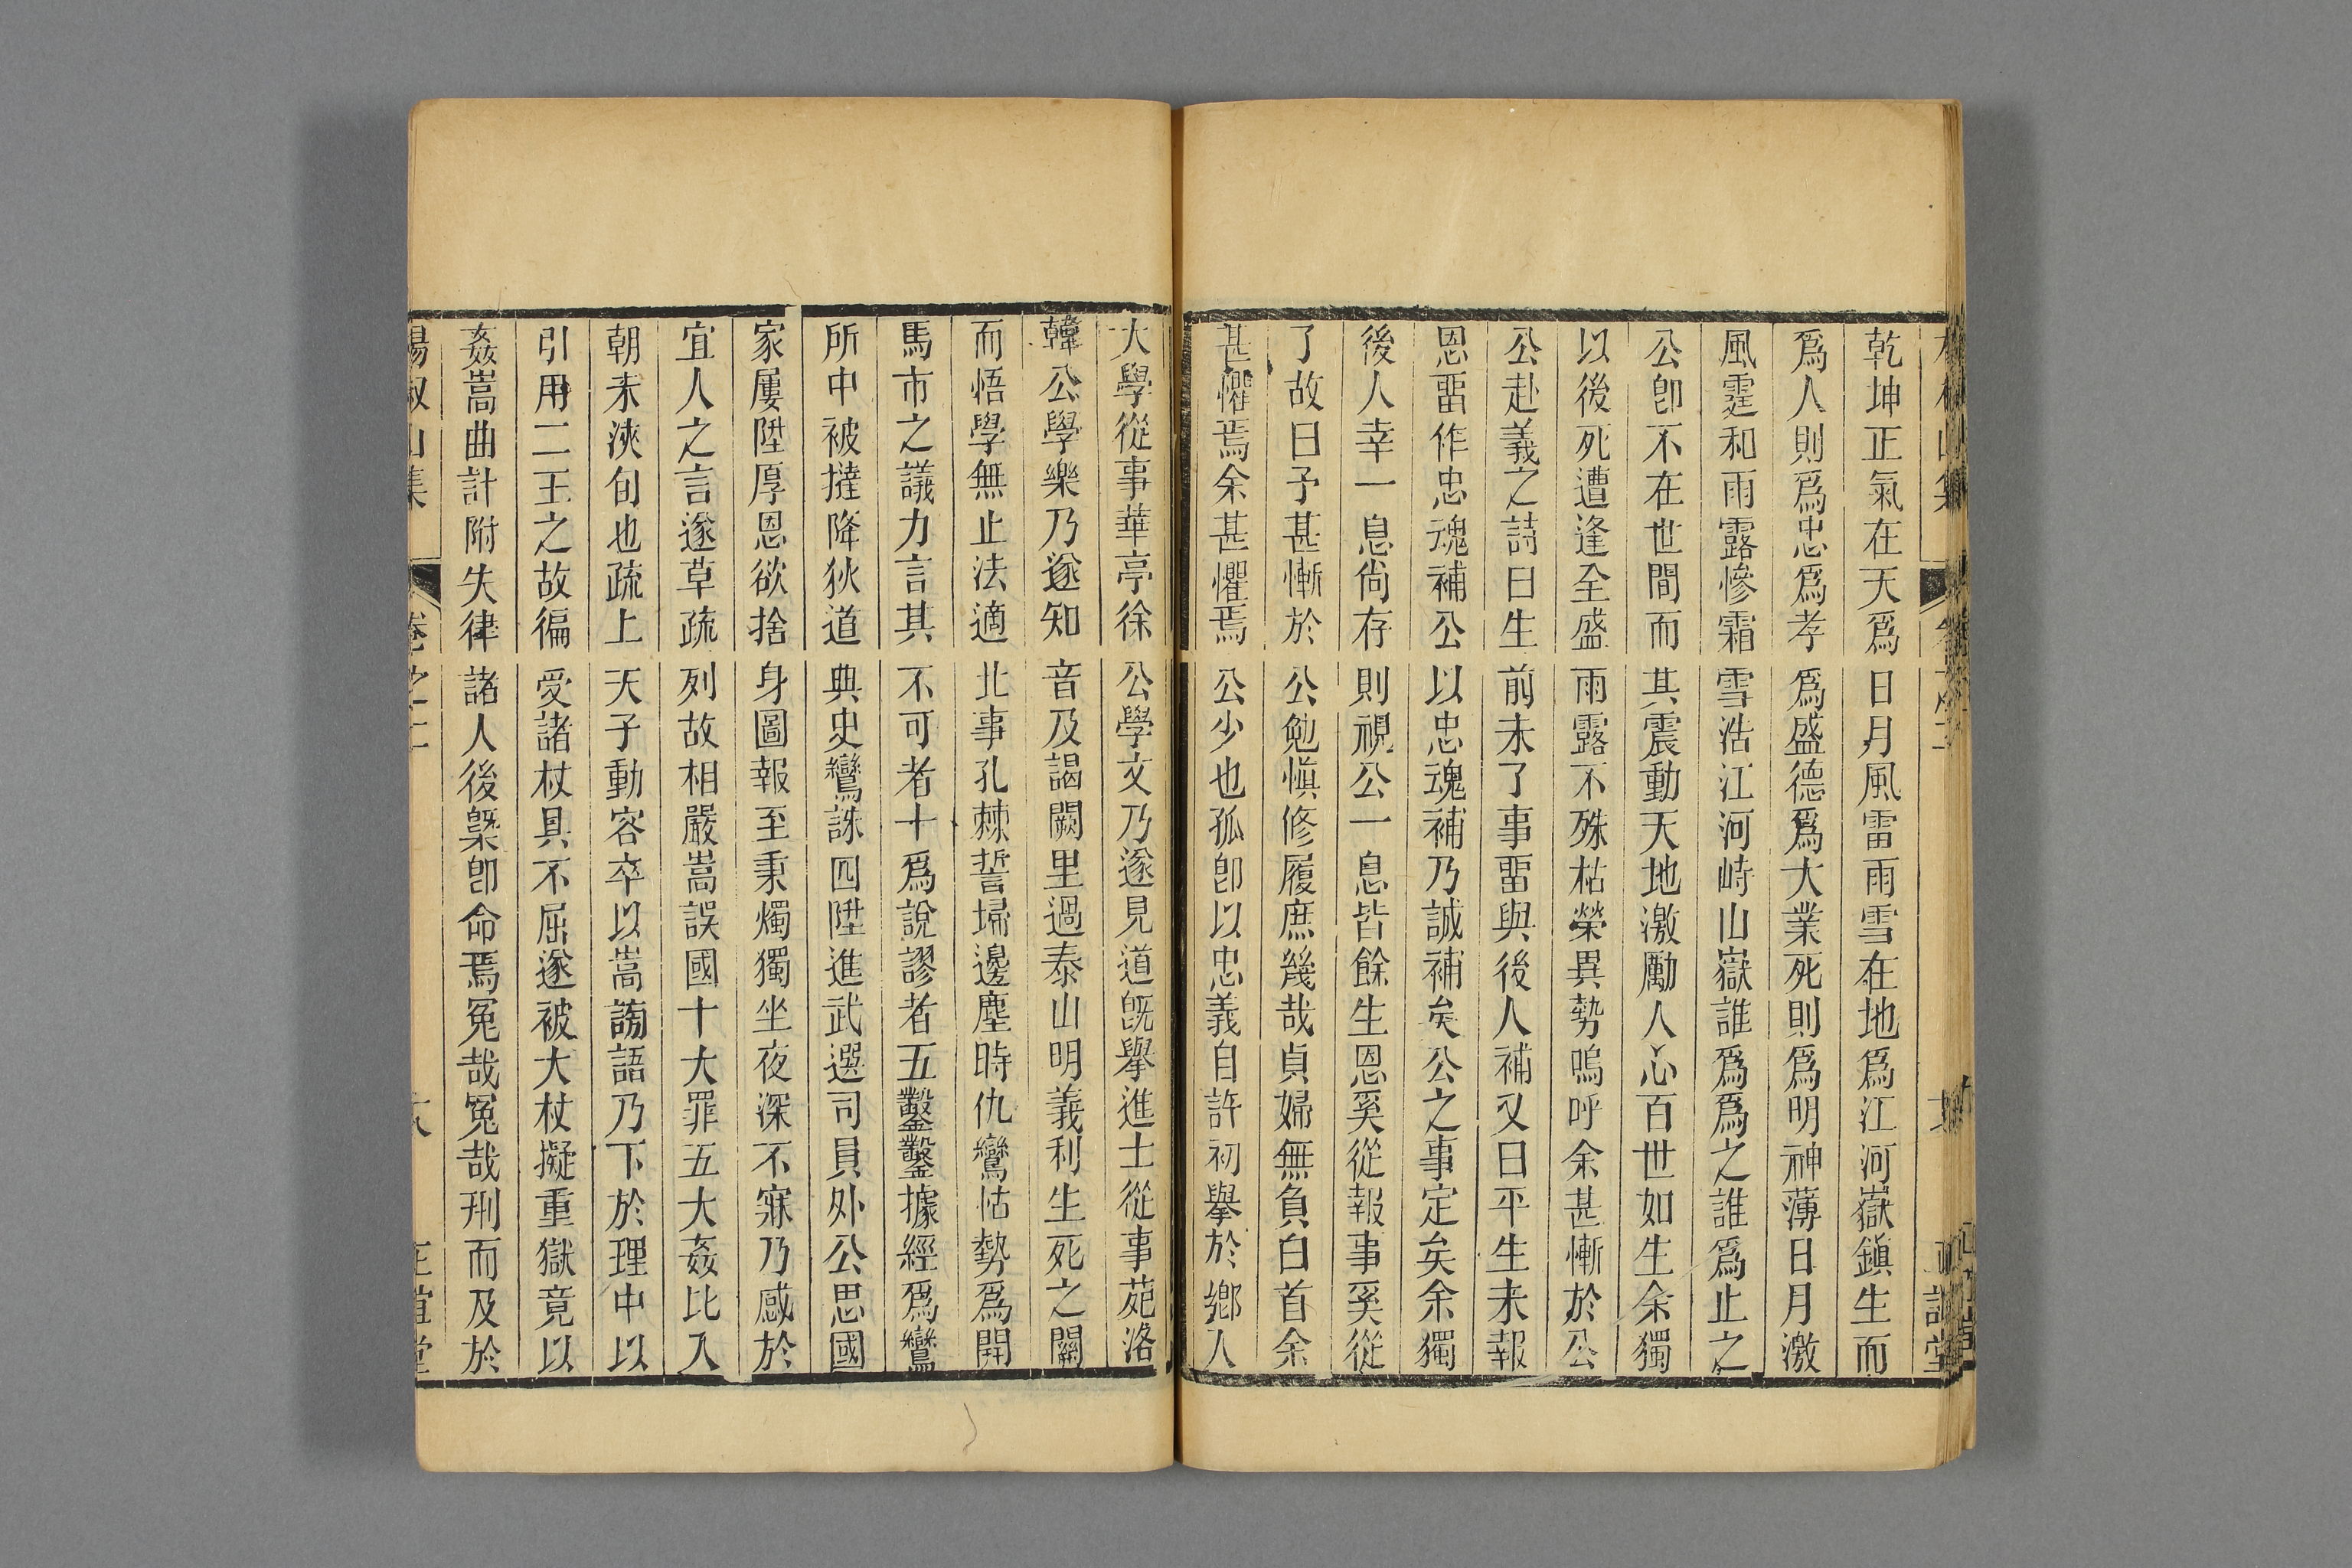 乾坤正氣在天爲日月風雷雨雪在地爲江河嶽鎮生而
爲人則爲忠爲孝爲盛德爲大業死則爲明神薄日月激
風霆和雨露慘霜雪浩江河峙山嶽誰爲爲之誰爲止之
公卽不在世間而其震動天地激勵人心百世如生余獨
以後死遭逢全盛雨露不殊枯榮異勢嗚呼余甚慚於公
公赴義之詩曰生前未了事畱與後人補又曰平生未報
恩畱作忠魂補公以忠魂補乃誠補矣公之事定矣余獨
後人幸一息尙存則視公一息皆餘生恩奚從報事奚從
了故曰予甚慚於公勉愼修履庶幾哉貞婦無負白首余
甚懼焉余甚懼焉公少也孤卽以忠義自許初擧於鄉入
大學從事華亭徐公學文乃遂見道旣擧進士從事苑洛
韓公學樂乃遂知音及謁闕里過泰山明義利生死之關
而悟學無止法適北事孔棘誓埽邊塵時仇鸞怙勢爲開
馬市之議力言其不可者十爲說謬者五鑿鑿據經爲鸞
所中被撻降狄道典史鸞誅四陞進武選司員外公思國
家屢陞厚恩欲捨身圖報至秉燭獨坐夜深不寐乃感於
宜人之言遂草疏列故相嚴嵩誤國十大罪五大姦比入
朝未浹旬也疏上天子動容卒以嵩謗語乃下於理中以
引用二王之故徧受諸杖具不屈遂被大杖擬重獄竟以
姦嵩曲計附失律諸人後槩卽命焉冤哉冤哉刑而及於
楊椒山集 卷之二